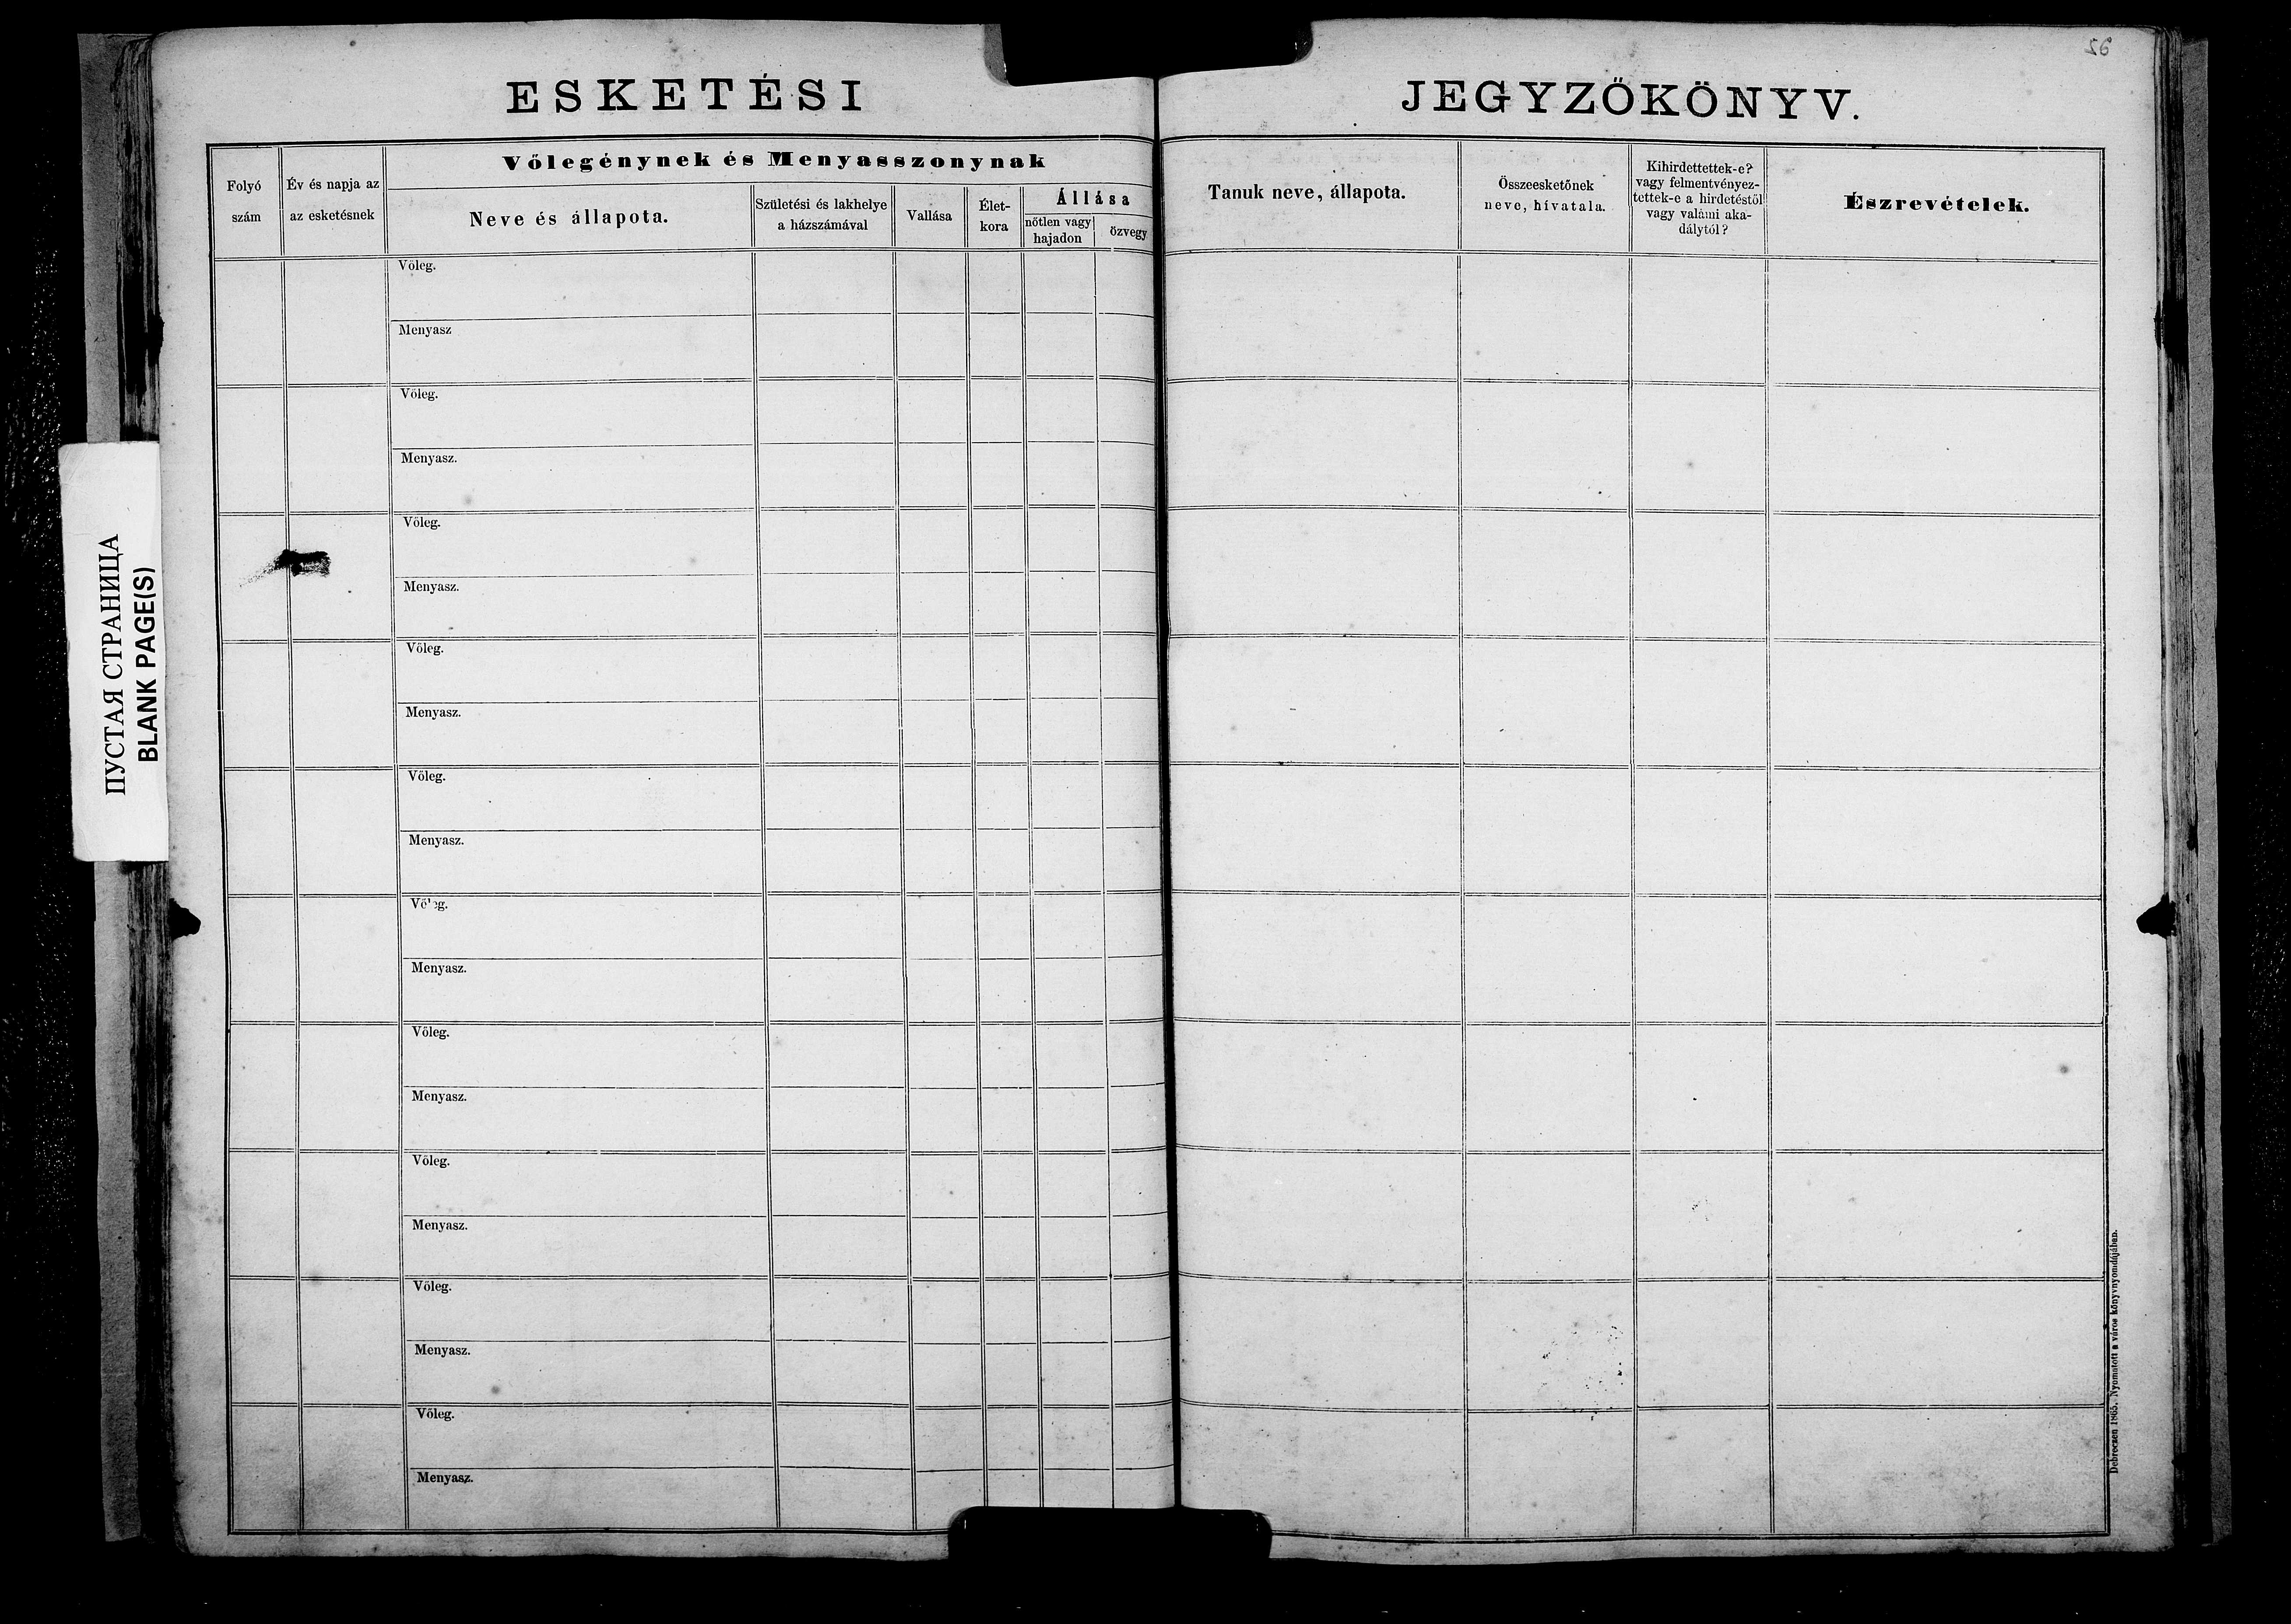 56
ESKETÉSI JEGYZŐKÖNYV.
Folyó
szám
Év és napja az
az esketésnek
Vőlegénynek és Menyasszonynak
Neve és állapota.
Születési és lakhelye
a házszámával
Vallása
Élet-
kora
Állása
nőtlen vagy
hajadon
özvegy
Tanuk neve, állapota.
Összeesketőnek
neve, hívatala.
Kihirdettettek-e?
vagy felmentvényez-
tettek-e a hirdetéstől
vagy valami aka-
dálytól?
Észrevételek.
Vőleg.
Menyasz
Vőleg.
Menyasz.
Vőleg.
Menyasz.
Vőleg.
Menyasz.
Vőleg.
Menyasz.
Vőleg.
Menyasz.
Vőleg.
Menyasz.
Vőleg.
Menyasz.
Vőleg.
Menyasz.
Vőleg.
Menyasz.
ПУСТАЯ СТРАНИЦА
BLANK PAGE(S)
Debreczen 1865. Nyomatott a város könyvnyomdájában.